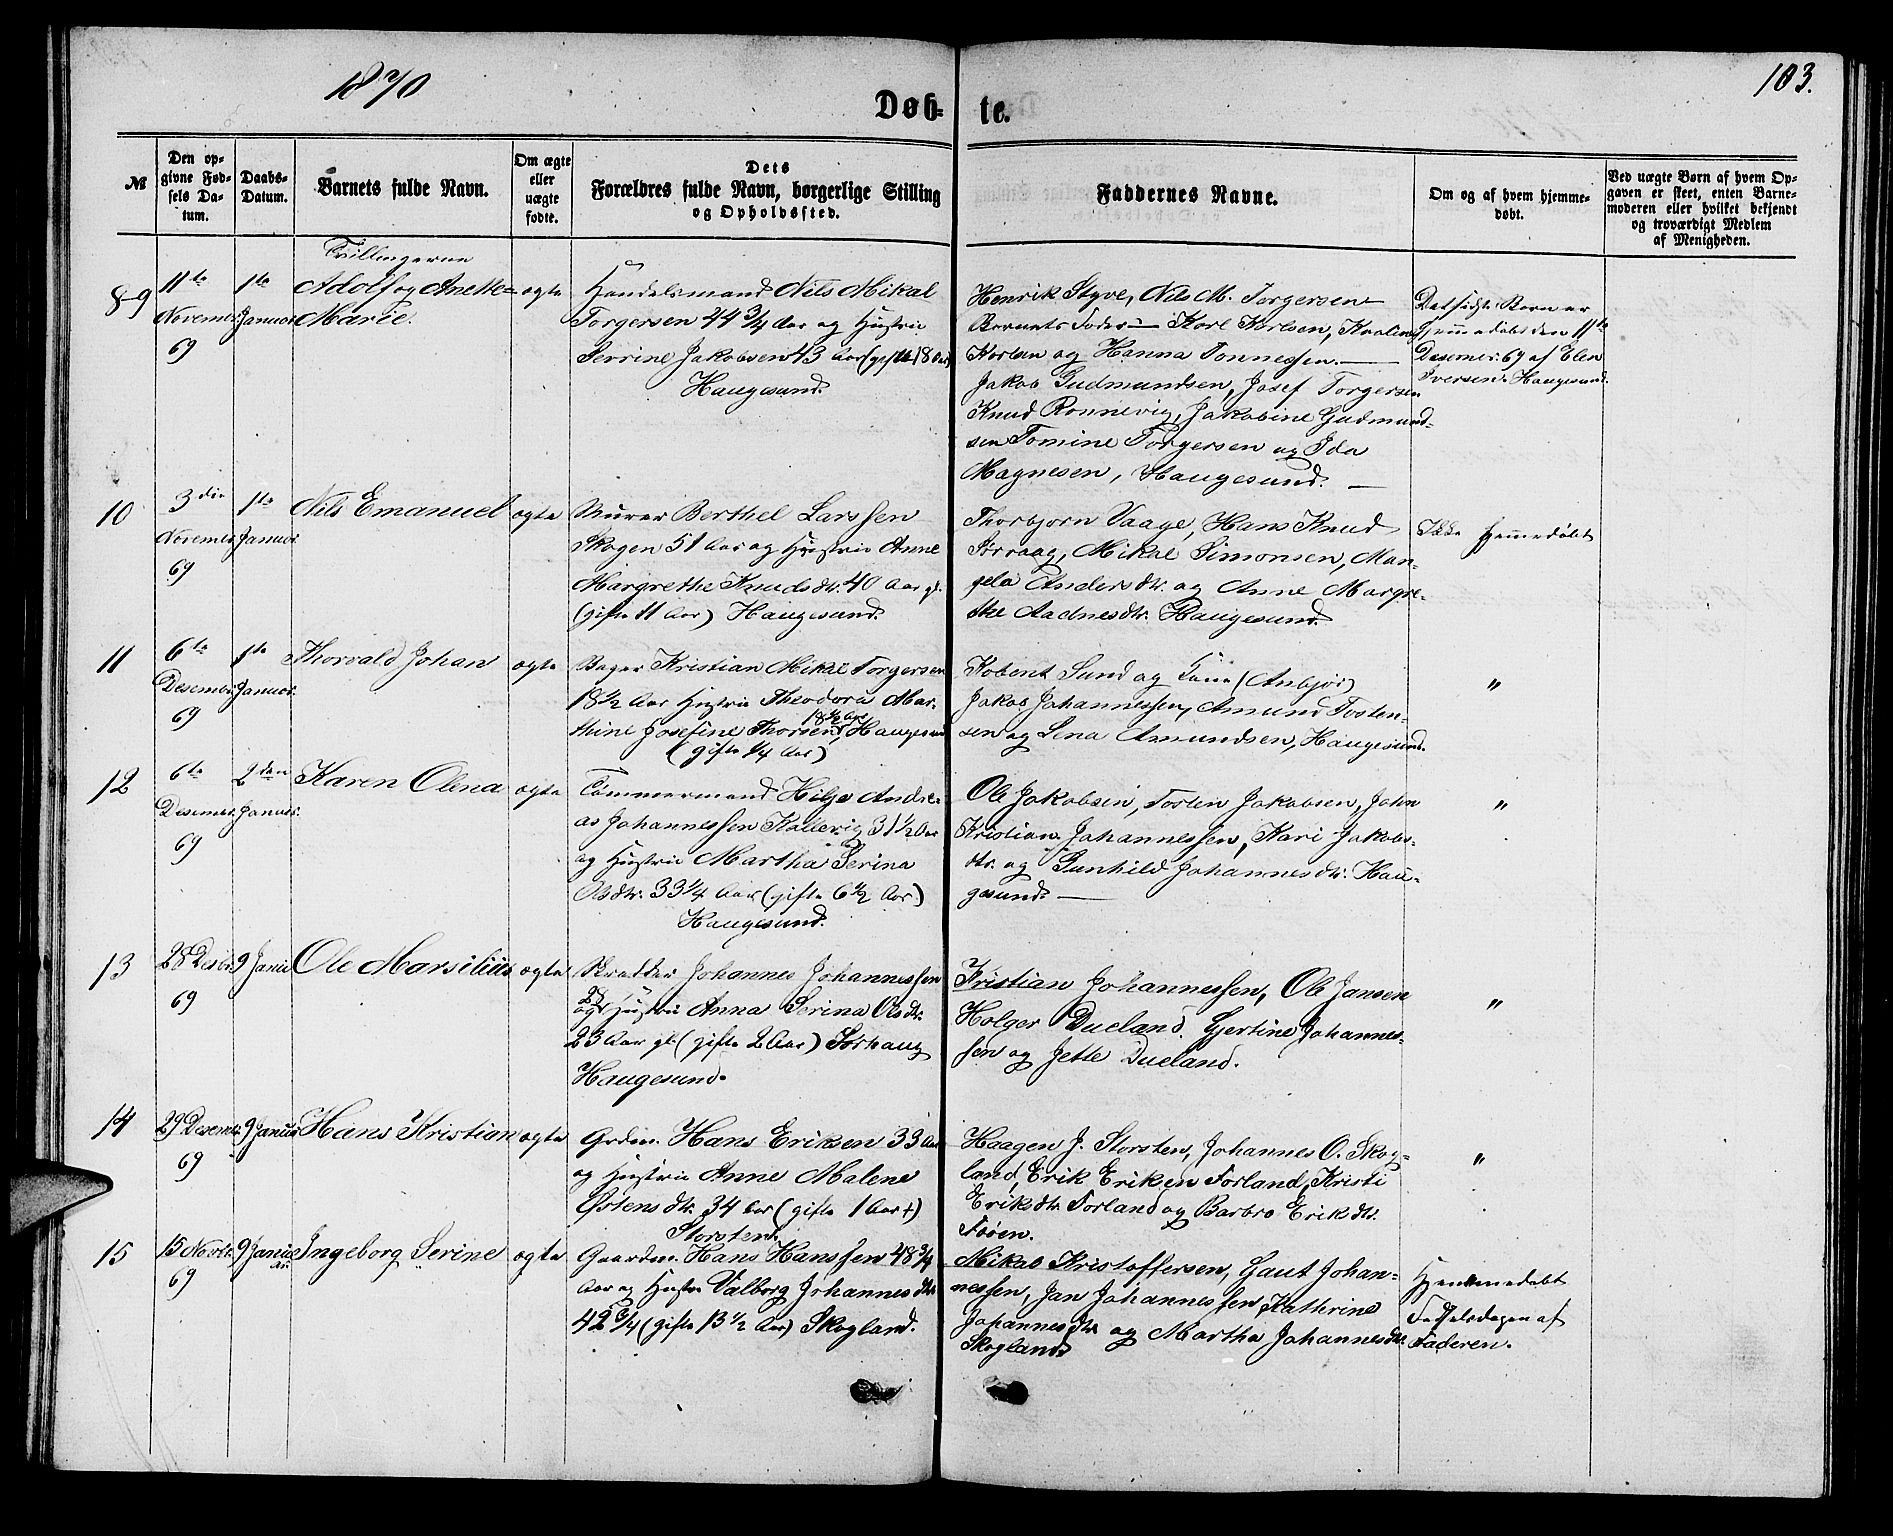 1870
103.
Døb-
te.
№
Den op-
givne Fød-
sels Da-
tum.
Daabs-
Datum.
Barnets fulde Navn.
Om ægte
eller
uægte
fødte.
Dets
Forældres fulde Navn, borgerlige Stilling
og Opholdssted.
Faddernes Navne.
Om og af hvem hjemme-
døbt.
Ved uægte Børn af hvem Op-
gaven er skeet, enten Barne-
moderen eller hvilket bekjendt
og troværdigt Medlem
af Menigheden.
8-9
11te
Novemer
69
1te
Januar
Tvillingerne
Adolf og Anette
Marie.
ægte
Handelsmand Nils Mikal
Torgersen 44 3/4 Aar og Hustrue
Serrine Jakobsen 43 Aar (gifte 18 Aar)
Haugesund.
Henrik Styve, Nils M. Torgersen
Barnets Fader — Karl Karlsen,
og Hanna Tonnessen. —
Jakob Gudmundsen, Josef Torgersen
Knud Rønnevig, Jakobine Gudmund-
sen Tomine Torgersen og Ida
Magnesen, Haugesund. —
Det sidste Barn er
hjemmedøbt den 11te
Desemer. 69 af Elen
Iversen. Haugesund.
10
3die
Novemer.
69
1te
Januar
Nils Emanuel
ægte
Murer Berthel Larssen
Skogen 51 Aar og Hustrue Anne
Margrethe Knudsdtr. 40 Aar gl.
(gifte 11 Aar) Haugesund.
Thorbjørn Vaage, Hans Knud
Sørvaag, Mikal Simonsen, Man-
gela Andersdtr. og Anne Margre-
the Aadnesdtr. Haugesund.
Ikke hjemmedøbt
11
6te
Desemer.
69
1te
Januar.
Thorvald Johan
ægte
Bager Kristian Mikal Torgersen
18 1/2 Aar Hustrue Theodora Mar-
thine Josefine Thorsen, 18 1/2 Aar Haugesund
(gifte 1/4 Aar)
Kobent Sund og (Anbjør)
Jakob Johannessen, Amund Tosten-
sen og Lena Amundsen, Haugesund.
"
12
6te
Desemer.
69
2den
Januar.
Karen Olena
ægte
Tømmermand Hilge Andre-
as Johannessen Kallevig 31 1/2 Aar
og Hustrue Martha Serina
Olsdtr. 33 1/4 Aar (gifte 6 1/2 Aar)
Haugesund.
Ole Jakobsen, Tosten Jakobsen, John
Kristian Johannessen, Kari Jakobs-
dtr. og Gunhild Johannesdtr. Hau-
gesund. —
"
13
28 Desbr.
69
9 Janua
Ole Marsilius
ægte
Skredder Johannes Johannessen
28
og Hustrue Anna Serina Olsdtr.
23 Aar gl. (gifte 2 Aar) Sørhaug
Haugesund.
Kristian Johannessen, Ole Jansen
Holger Dueland. Gjertine Johannes-
sen og Jette Dueland.
"
14
29 Desemer.
69
9 Januar
Hans Kristian
ægte
Grdm. Hans Eriksen 33 Aar
og Hustrue Anne Malene
Østensdtr. 34 Aar (gifte 1 Aar +)
Storsten.
Haagen J. Storsten, Johannes O. Skog-
land, Erik Eriksen Førland, Kristi
Eriksdtr. Førland og Barbro Eriksdtr.
Føøen.
"
15
15 Novbr.
69
9 Janu
ar
Ingeborg Serine
ægte
Gaardm. Hans Hanssen 48 3/4
Aar og Hustru Valborg Johannesdtr.
42 3/4 (gifte 13 1/2 Aar) Skogland.
Mikal Kristoffersen, Gaut Johan-
nessen, Jan Johannessen, Kathrine
Johannesdtr. og Martha Johannesdtr.
Skogland.
Hjemmedøbt
Fødselsdagen af
Faderen.